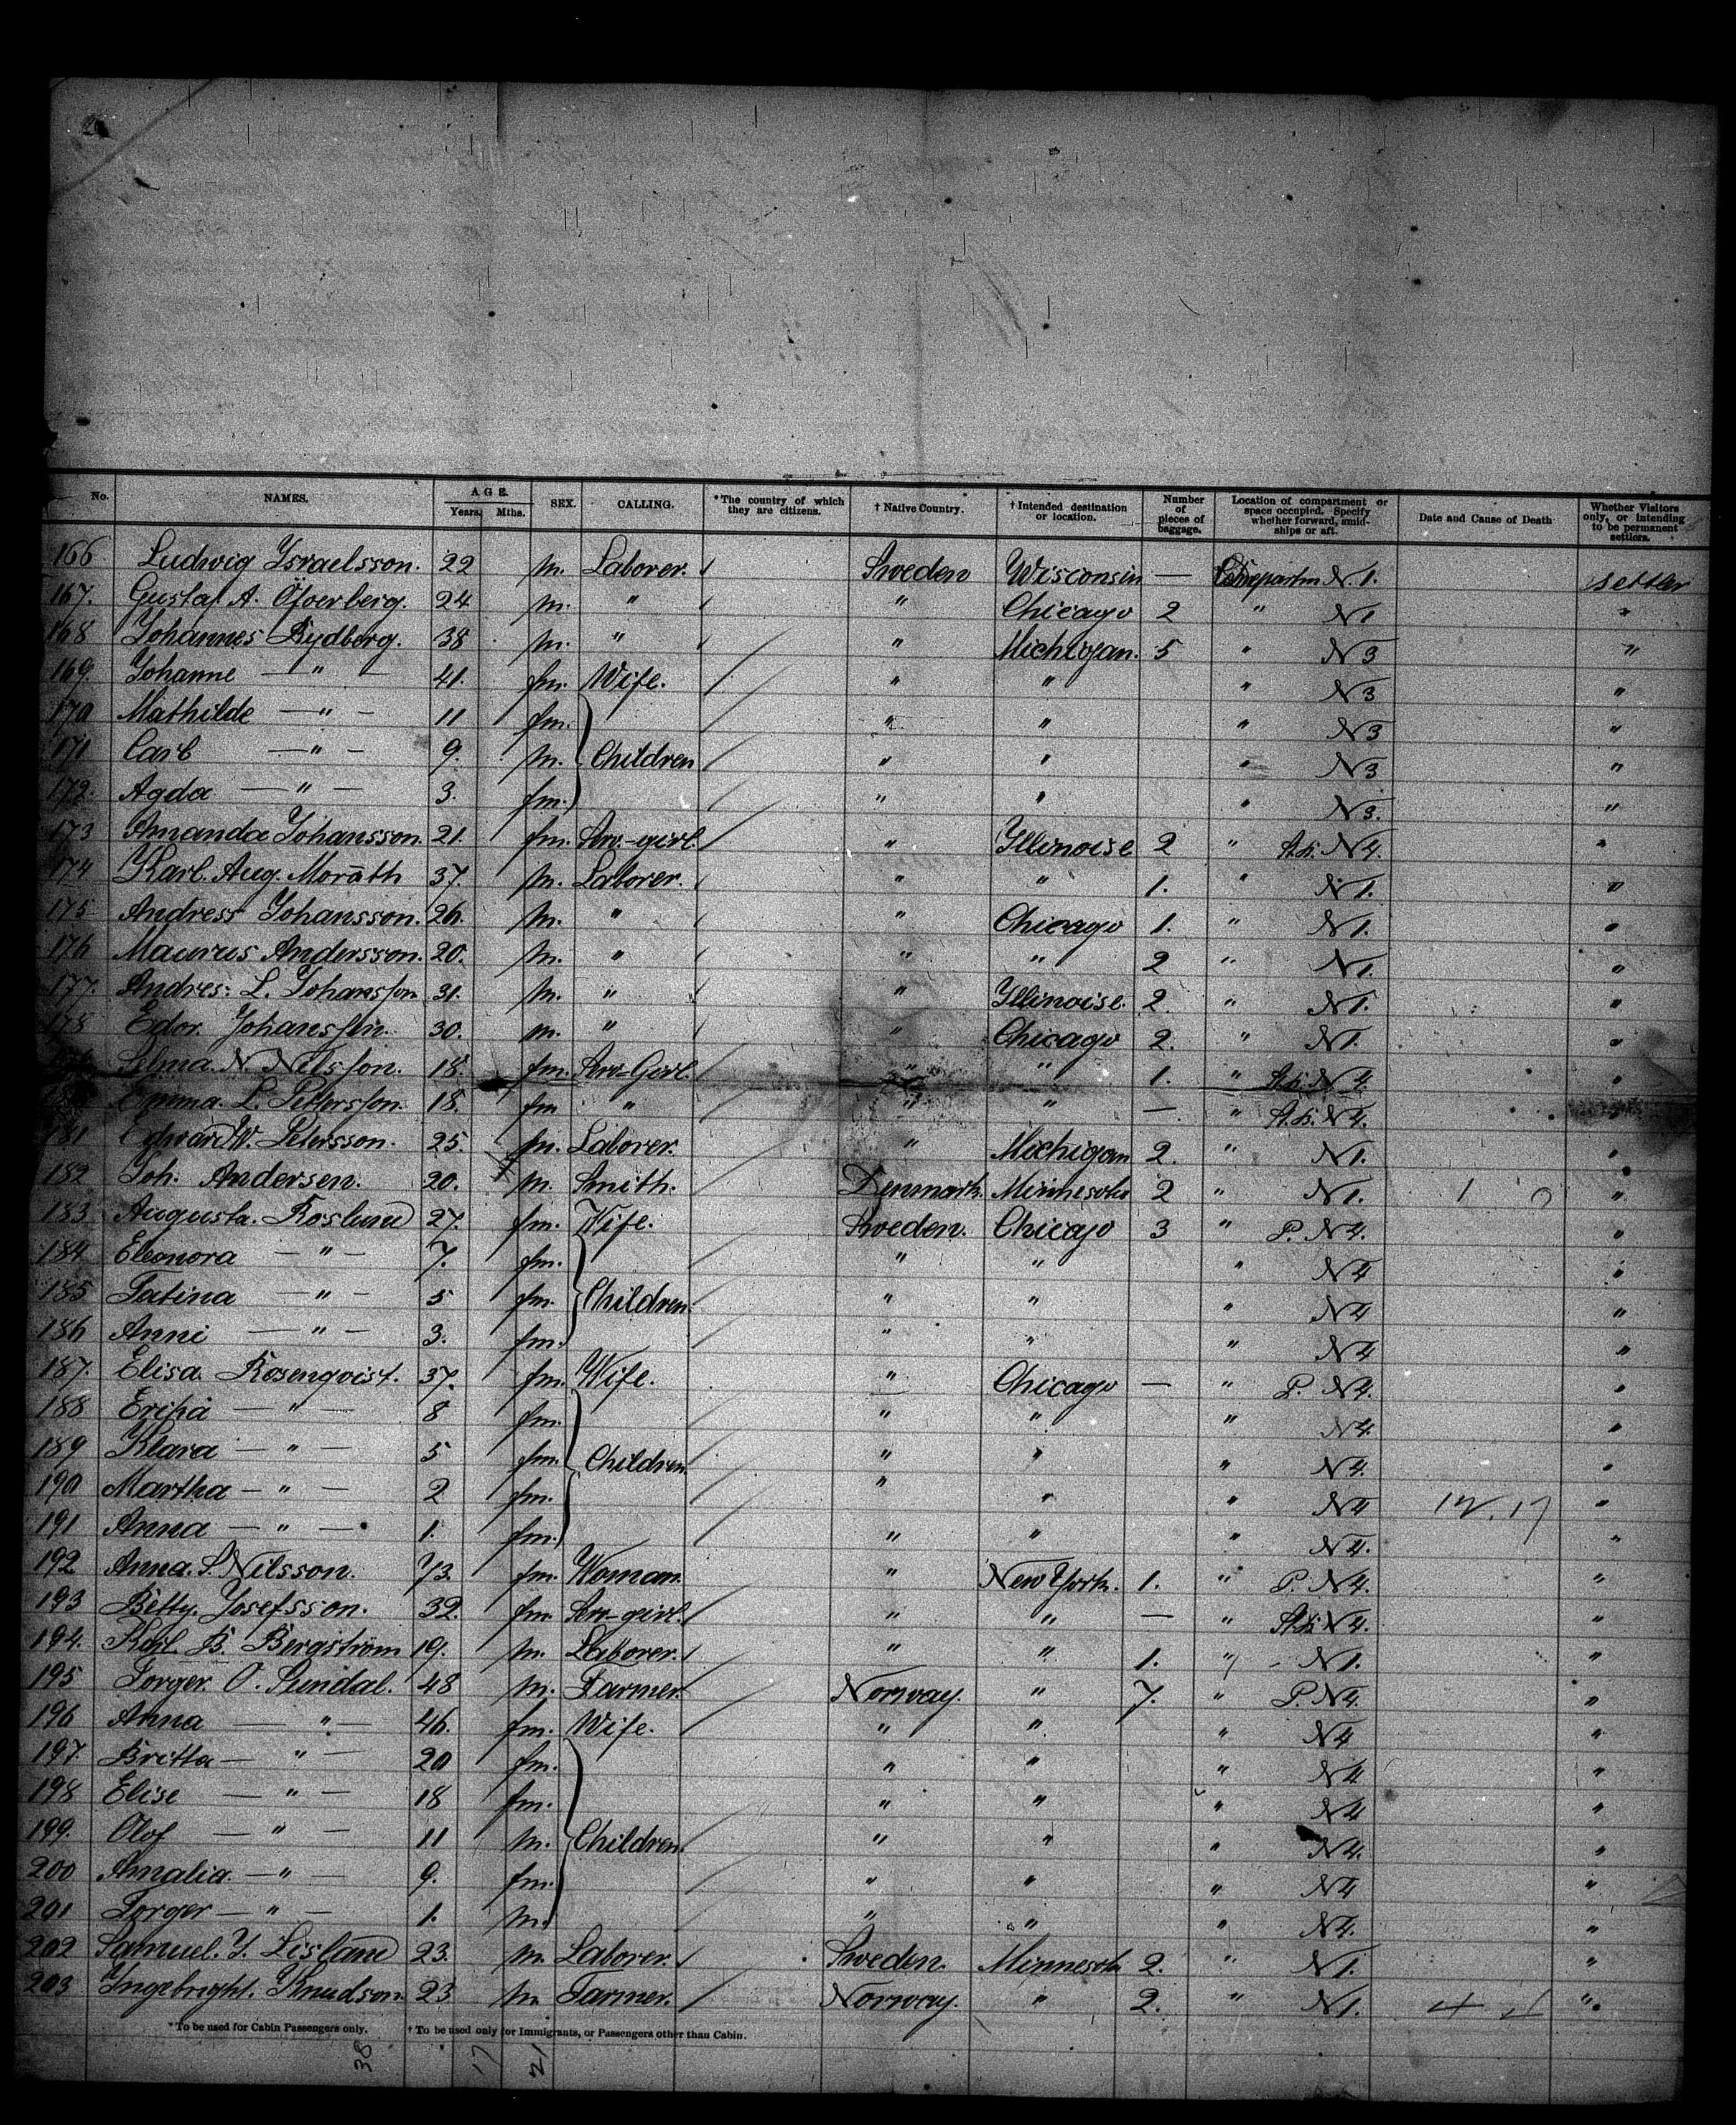 No. NAMES. AGE. Years. Mths. SEX. CALLING. *The country of which they are citizens. † Native Country. † Intended destination or location. Number of pieces of baggage. Location of compartment or space occupied. Specify whether forward, amidships or aft. Date and Cause of Death Whether Visitors only, or intending to be permanent settlers.
166 Ludwig Ysraelsson. 22 m. Laborer. Sweden Wisconsin — N1. settler
167. Gustaf A. Öfverberg. 24 m. " " Chicago 2 " N1 "
168 Johannes Rydberg. 38 m. " " Michigan. 5 " N3 "
169. Johanne — " — 41. fm. Wife. " " " N3 "
170 Mathilde — " — 11 fm. " " " N3 "
171 Carl — " — 9. m. Children " " " N3 "
172. Agda — " — 3. fm. " " " N3. "
173 Amanda Johansson. 21. fm. Srv.-girl. " Yllinoise 2 " N4. "
174 Karl. Aug. Moräth 37. m. Laborer. " " 1. " N1. "
175 Andress Johansson. 26. m. " " Chicago 1. " N1. "
176 Maurus Andersson. 20. m. " " " 2 " N1. "
177. Andres: L. Johansson 31. m. " " Yllinoise. 2. " N1. "
178 Edor. Johansson. 30. m. " " Chicago 2. " N1. "
Selma. N. Nilsson. 18. fm. Srv-Girl. " " 1. " N4. "
Emma. L. Pettersson. 18. fm " " " — " N4. "
181 Edward W. Petersson. 25. m. Laborer. " Michigan 2. " N1. "
182 Joh. Andersen. 20. m. Smith. Denmark. Minnesota 2 " N1. "
183 Augusta. Roslund 27. fm. Wife. Sweden. Chicago 3 " P. N4. "
184 Eleonora — " — 7. fm. " " " N4 "
185 Tatina — " — 5 fm. Children. " " " N4 "
186 Anni — " — 3. fm. " " " N4 "
187. Elisa. Rosenqvist. 37. fm. Wife. " Chicago — " P. N4. "
188 Erika — " — 8 fm. " " " N4. "
189 Klara — " — 5 fm. Children. " " " N4. "
190 Martha — " — 2 fm. " " " N4 12.17 "
191 Anna — " — 1. fm. " " " N4. "
192 Anna. S. Nilsson. 73. fm. Woman. " New York. 1. " P. N4. "
193 Betty. Josefsson. 32. fm. Srv-girl. " " — " N4. "
194. Karl. B. Bergström 19. m. Laborer. " " 1. " N1. "
195 Torger O. Sundal. 48 m. Farmer. Norway. " 7. " P. N4. "
196 Anna — " — 46. fm. Wife. " " " N4 "
197. Britta — " — 20 fm. " " " N4 "
198 Elise — " — 18 fm. " " " N4 "
199. Olof — " — 11 m. Children. " " " N4. "
200 Amalia. — " — 9. fm. " " " N4 "
201 Torger — " — 1. m. " " " N4. "
202 Samuel. Y. Lisland 23. m. Laborer. Sweden. Minnesota 2. " N1. "
203 Yngebright. Knudson 23 m Farmer. Norway. " 2. " N1. "
*To be used for Cabin Passengers only. † To be used only for Immigrants, or Passengers other than Cabin.
38 17 21